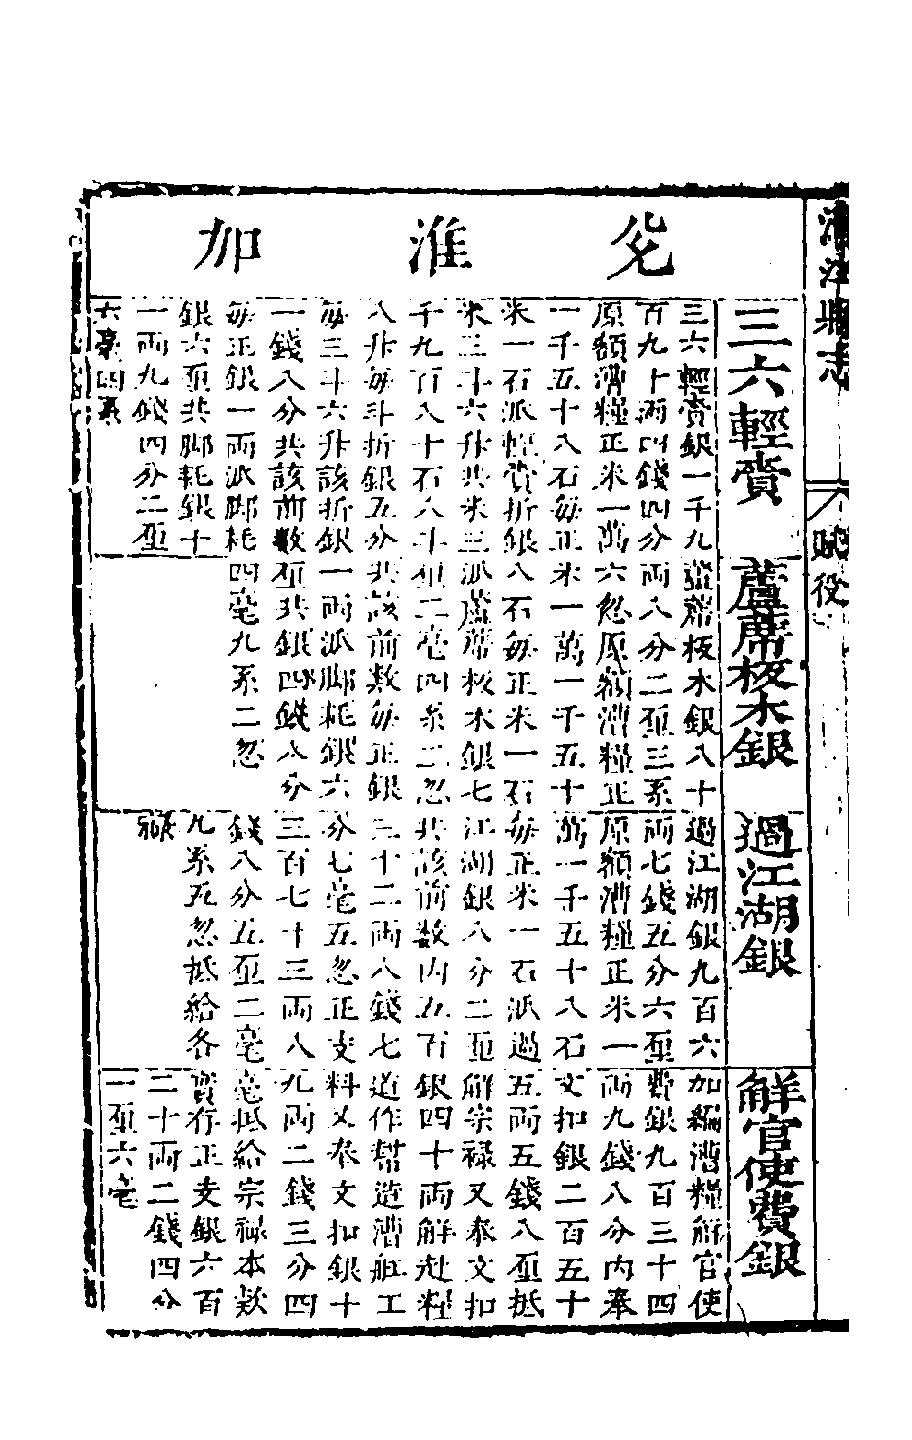 清江縣志
八 賦役
兊
淮
加
三六輕賫
三六輕賫銀一千九
百九十两四錢四分
原額漕糧正米一萬
一千五十八石每正
米一石派輕賫折銀
米三斗六升共米三
千九百八十石八斗
八升每斗折銀五分
每三斗六升該折銀
一錢八分共該前數
每正銀一两派脚耗
銀六厘共脚耗銀十
一两九錢四分二厘
六毫四系
蘆蓆板木銀
蘆蓆板木銀八十
两八分二厘三系
六忽原額漕糧正
米一萬一千五十
八石每正米一石
派蘆蓆板木銀七
厘二毫四系二忽
共該前數每正銀
一两派脚耗銀六
厘共銀四錢八分
四毫九系二忽
過江湖銀
過江湖銀九百六
两七錢五分六厘
原額漕糧正米一
萬一千五十八石
每正米一石派過
江湖銀八分二厘
共該前數内五百
三十二两八錢七
分七毫五忽正支
三百七十三两八
錢八分五厘二毫
九系五忽抵給各
祿
解官使費銀
加編漕糧解官使
費銀九百三十四
两九錢八分内奉
文扣銀二百五十
五两五錢八厘抵
解宗禄又奉文扣
銀四十两解赴糧
道作幇造漕舡工
料又奉文扣銀十
九两二錢三分四
毫抵給宗禄本欵
實存正支銀六百
二十两二錢四分
一厘六毫